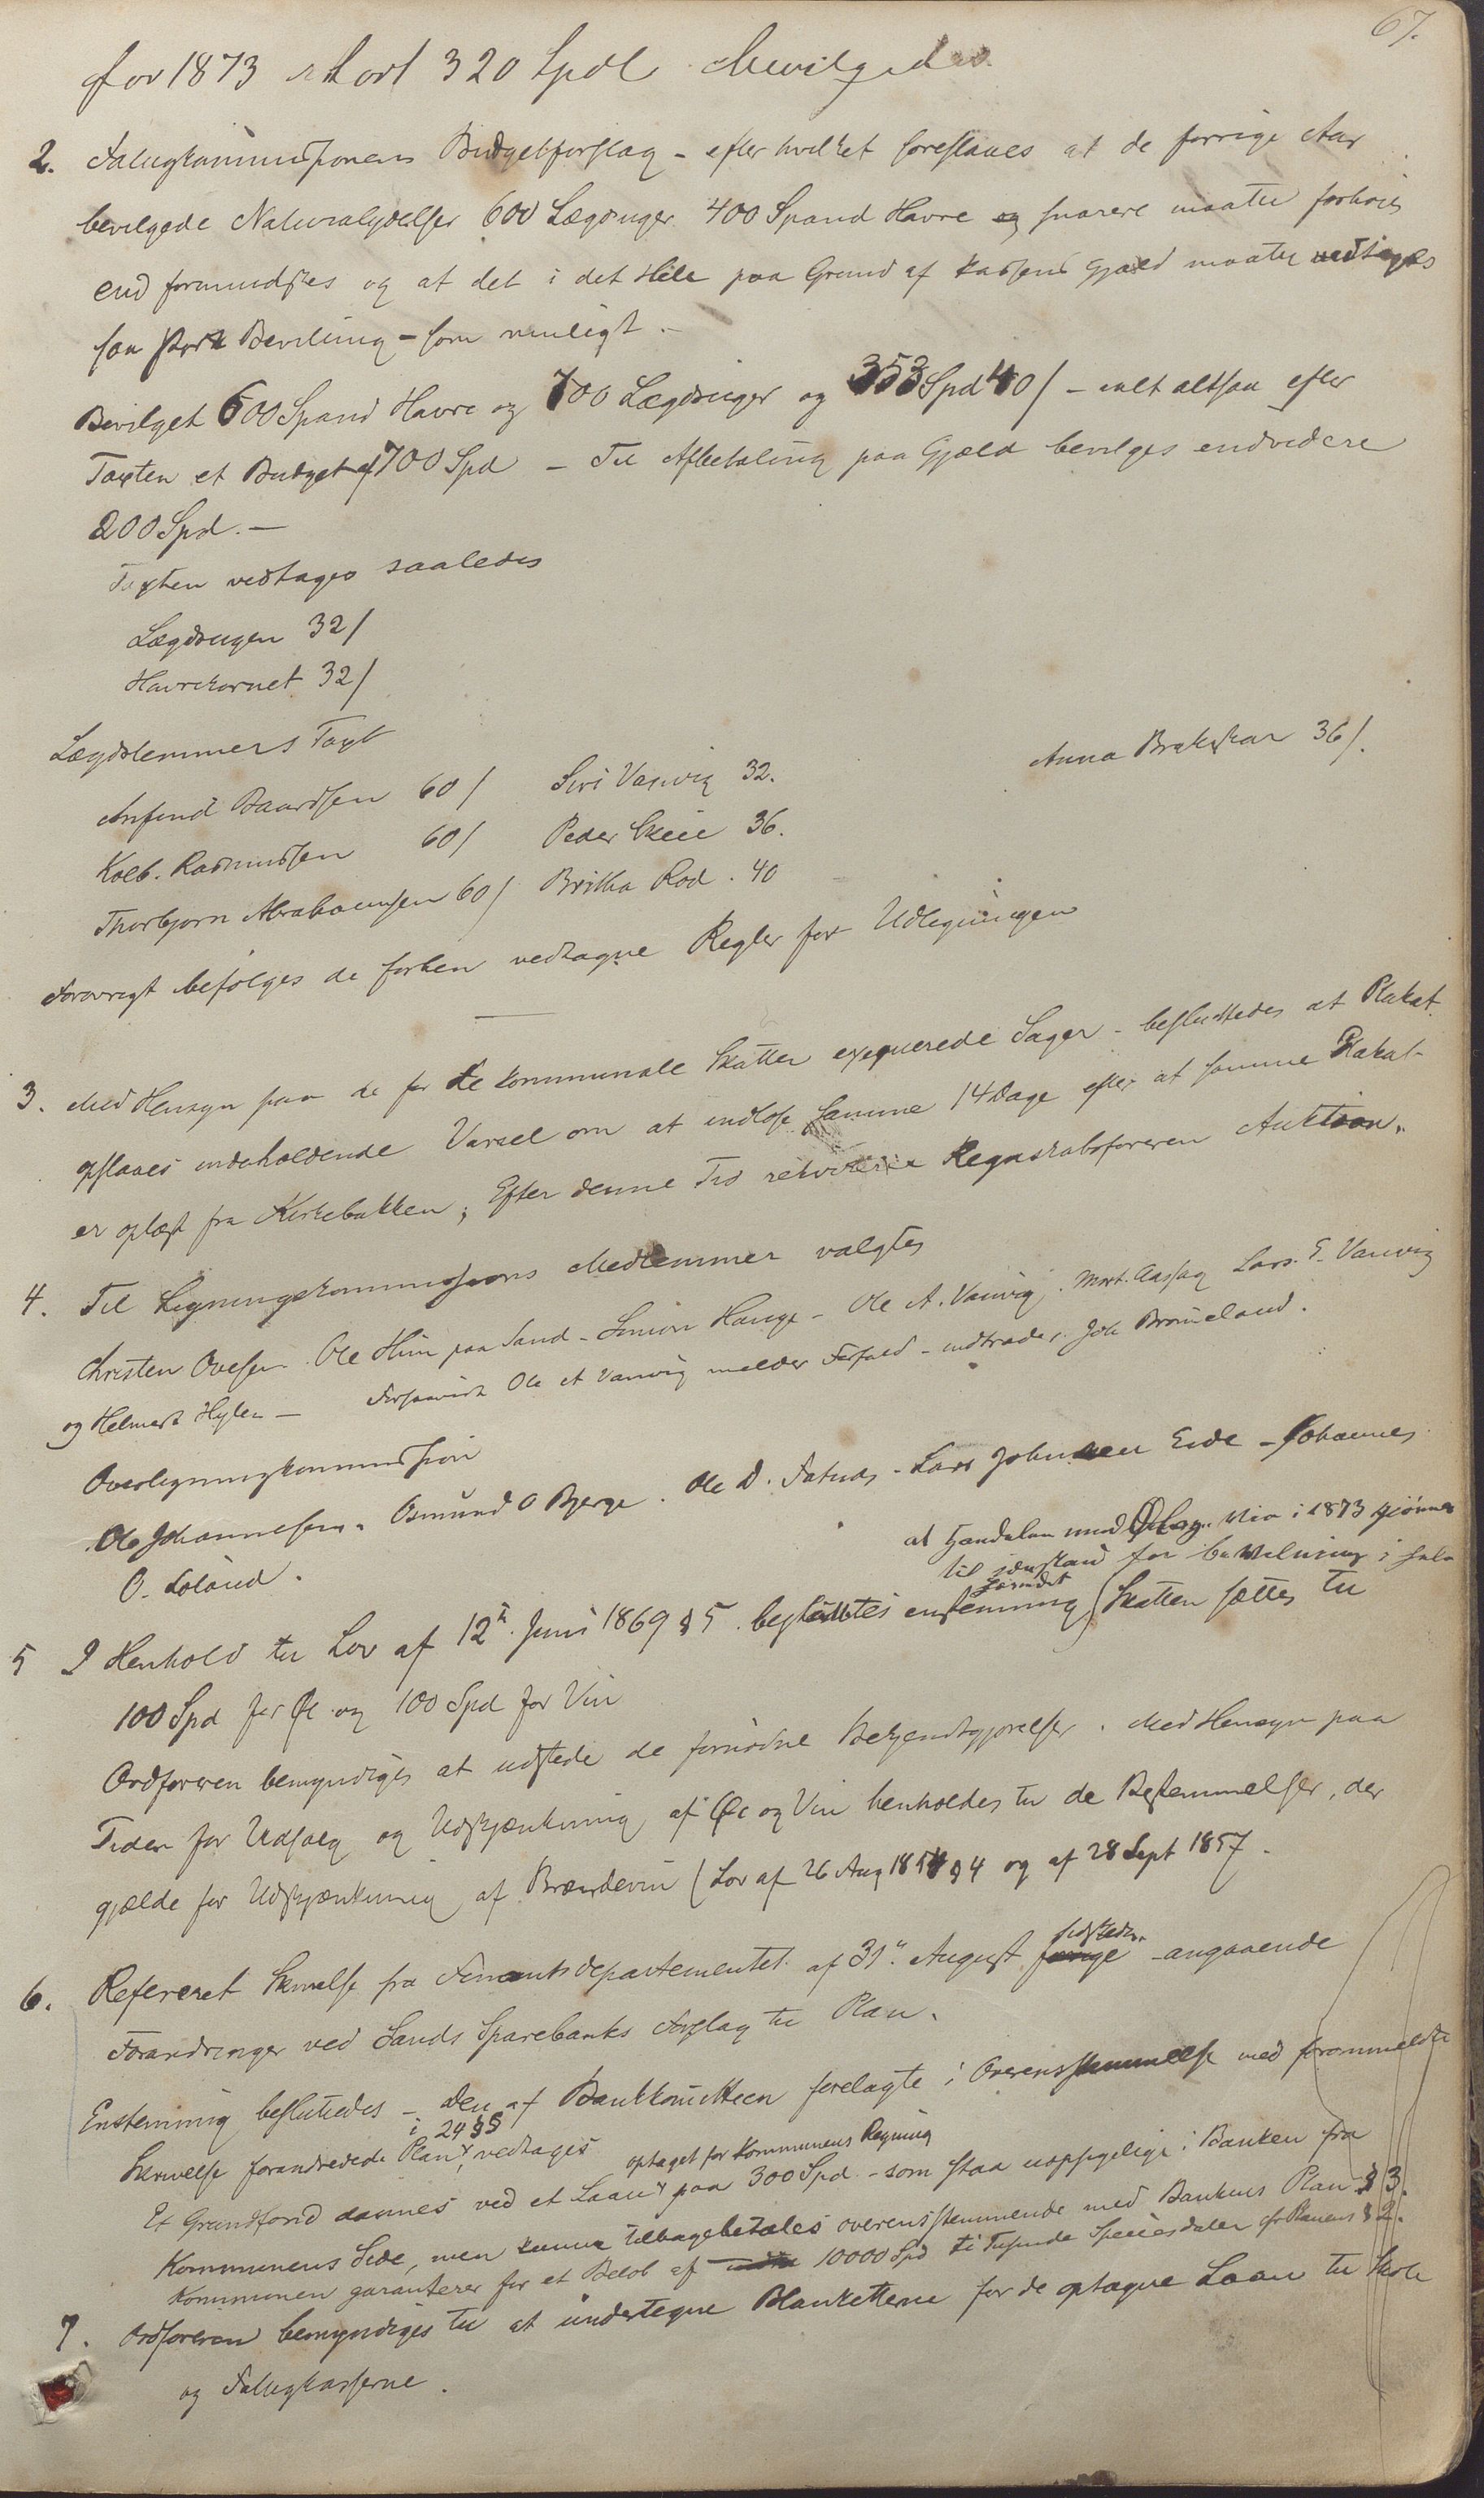 67.
for 1873 stort 320 Spdl bevilgedes
2. Fattigkommissionens Budgetforslag – efter hvilket foreslaaes at de forrige Aar
bevilgede Naturalydelser 600 Lægdsuger 400 Spand Havre og snarere maatte forhøies
end formindskes og at det i det Hele paa Grund af Kassens Gjæld maatte vedtages
saa stor Bevilling – som muligt.
Bevilget 600 Spand Havre og 700 Lægdsuger og 353 Spd 40/ – ialt altsaa efter
Taxten et Budget af 700 Spd – Til Afbetaling paa Gjæld bevilges endvidere
200 Spd. –
Taxten vedtages saaledes
Lægdsugen 32/
Havrekornet 32/
Lægdslemmers Taxt
Anfind Baardsen 60/ Siri Vanvig 32. Anna Brakskar 36/.
Kolb. Rasmussen 60/ Peder Skeie 36.
Thorbjørn Abrahamsen 60/ Britha Rod. 40
Forøvrigt befølges de forhen vedtagne Regler for Udligningen
3. Med Hensyn paa de for de kommunale Skatter exequerede Sager – besluttedes at Plakat
opslaaes indeholdende Varsel om at indløse samme 14 Dage efter at samme Plakat
er oplæst fra Kirkebakken; Efter denne Tid rekvirere Regnskabsføreren Auktion.
4. Til Ligningskommissions Medlemmer valgtes
Christen Ovesen. Ole Hiim paa Sand – Simon Hauge – Ole A. Vanvig. Mort. Aasjag Lars E. Vanvig
og Helmest Hylen – Forsaavidt Ole A Vanvig melder Forfald – indtræder Joh Braueland.
Overligningskommission
Ole Johannesen. Osmund O Bjerge. Ole D. Fatnes – Lars Johnsen Eide – Johannes
O. Løland.
at Handelen med Øl og Vin i 1873 gjøres
til Gjenstand for beskatning i hele
Herredet
5 I Henhold til Lov af 12te Juni 1869 § 5. besluttes enstemmig Skatten sættes til
100 Spd for Øl og 100 Spd for Vin
Ordføreren bemyndiges at udstede de fornødne Bekjendtgjørelser. Med Hensyn paa
Tiden for Udsalg og Udskjænkning af Øl og Vin henholdes til de Bestemmelser, der
gjælde for Udskjænkning af Brændevin (Lov af 26 Aug 1854 § 4 og af 28 Sept 1857.
6. Refereret Skrivelse fra Finantsdepartementet af 31te August sidstleden angaaende
Forandringer ved Sands Sparebanks Forslag til Plan.
Enstemmig besluttedes – den af Bankkomitteen forelagte i Overensstemmelse med forommeldte
Skrivelse forandrede Plan i 24 §§ vedtages
Et Grundfond dannes ved et Laan optaget for Kommunens Regning paa 300 Spd – som staa uopsigelige i Banken fra
Kommunens Side, men kunne tilbagebetales overensstemmende med Bankens Plan § 3.
Kommunen garanterer for et Beløb af 10000 Spd ti Tusinde Speciesdaler cfr Planens § 2.
7. Ordføreren bemyndiges til at undertegne Blanketterne for de optagne Laan til Skole
og Fattigkasserne.